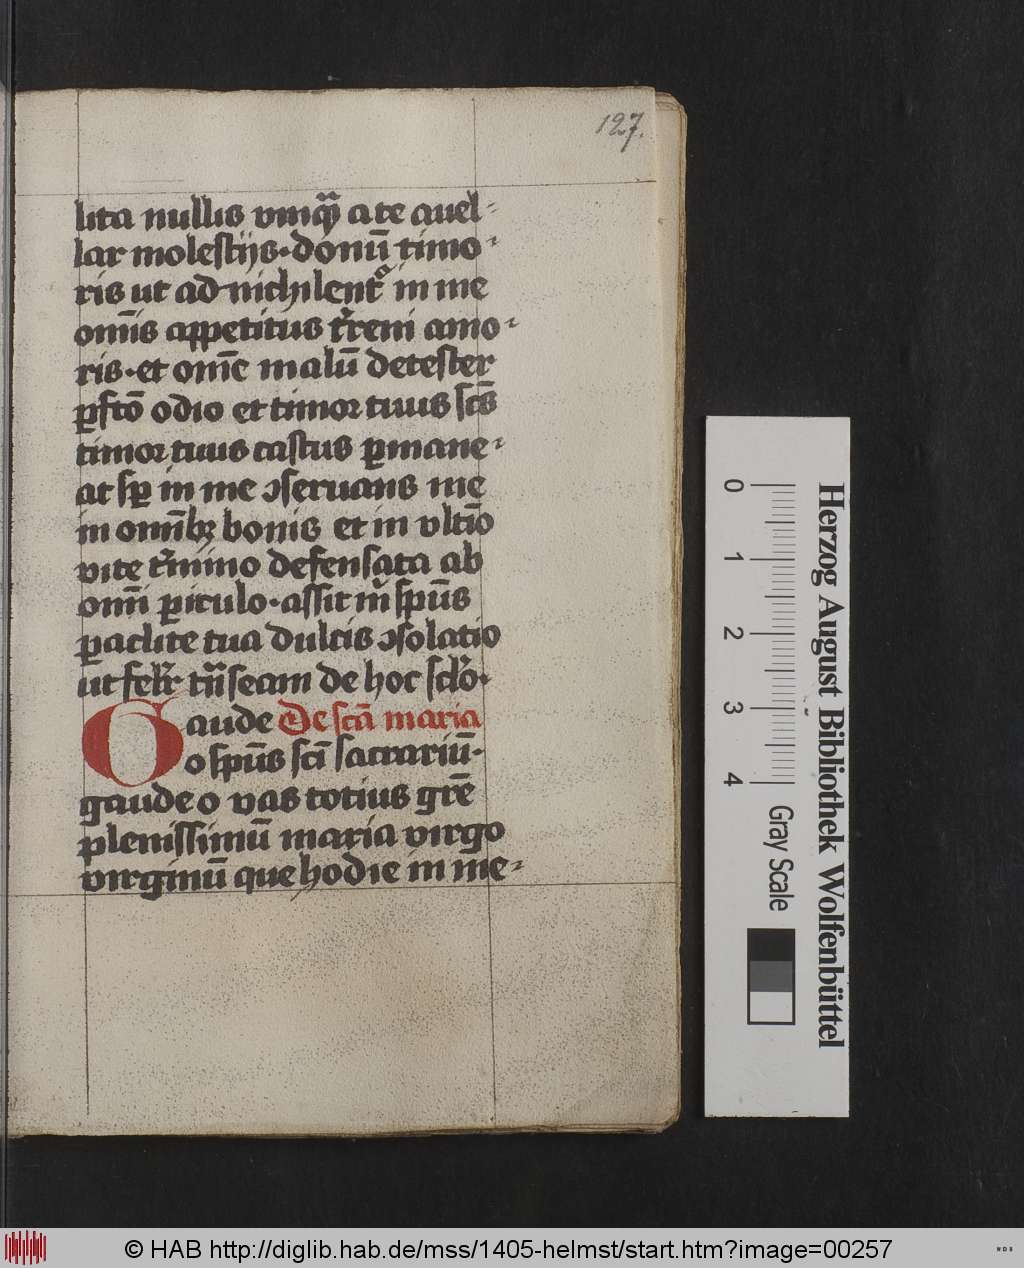 127.
lita nullis vmqᷓ a te auel-
lar molestijs·donū timo-
ris ut ad nichilent᷑ in me
om̄is appetitus t᷑reni amo-
ris·et om̄e malū detester
ꝑfcō odio et timor tuus sc̄s
timor tuus castus ꝑmane-
at sꝑ in me ꝯseruans me
in omībꝫ bonis et in vltīo
vite t᷑mino defensata ab
omī ꝑiculo·assit m̉ sp̄us
ꝑaclite tua dulcis ꝯsolatio
ut felr̉ tn̄seam de hoc sclo̓·
Gaude De scā maria
o sp̄us sc̄i sacrariū·
gaude o vas totius gr̄e
plenissimū maria virgo
virginū que hodie in me-
Herzog August Bibliothek Wolfenbüttel
0 1 2 3 4
Gray Scale
© HAB http://diglib.hab.de/mss/1405-helmst/start.htm?image=00257